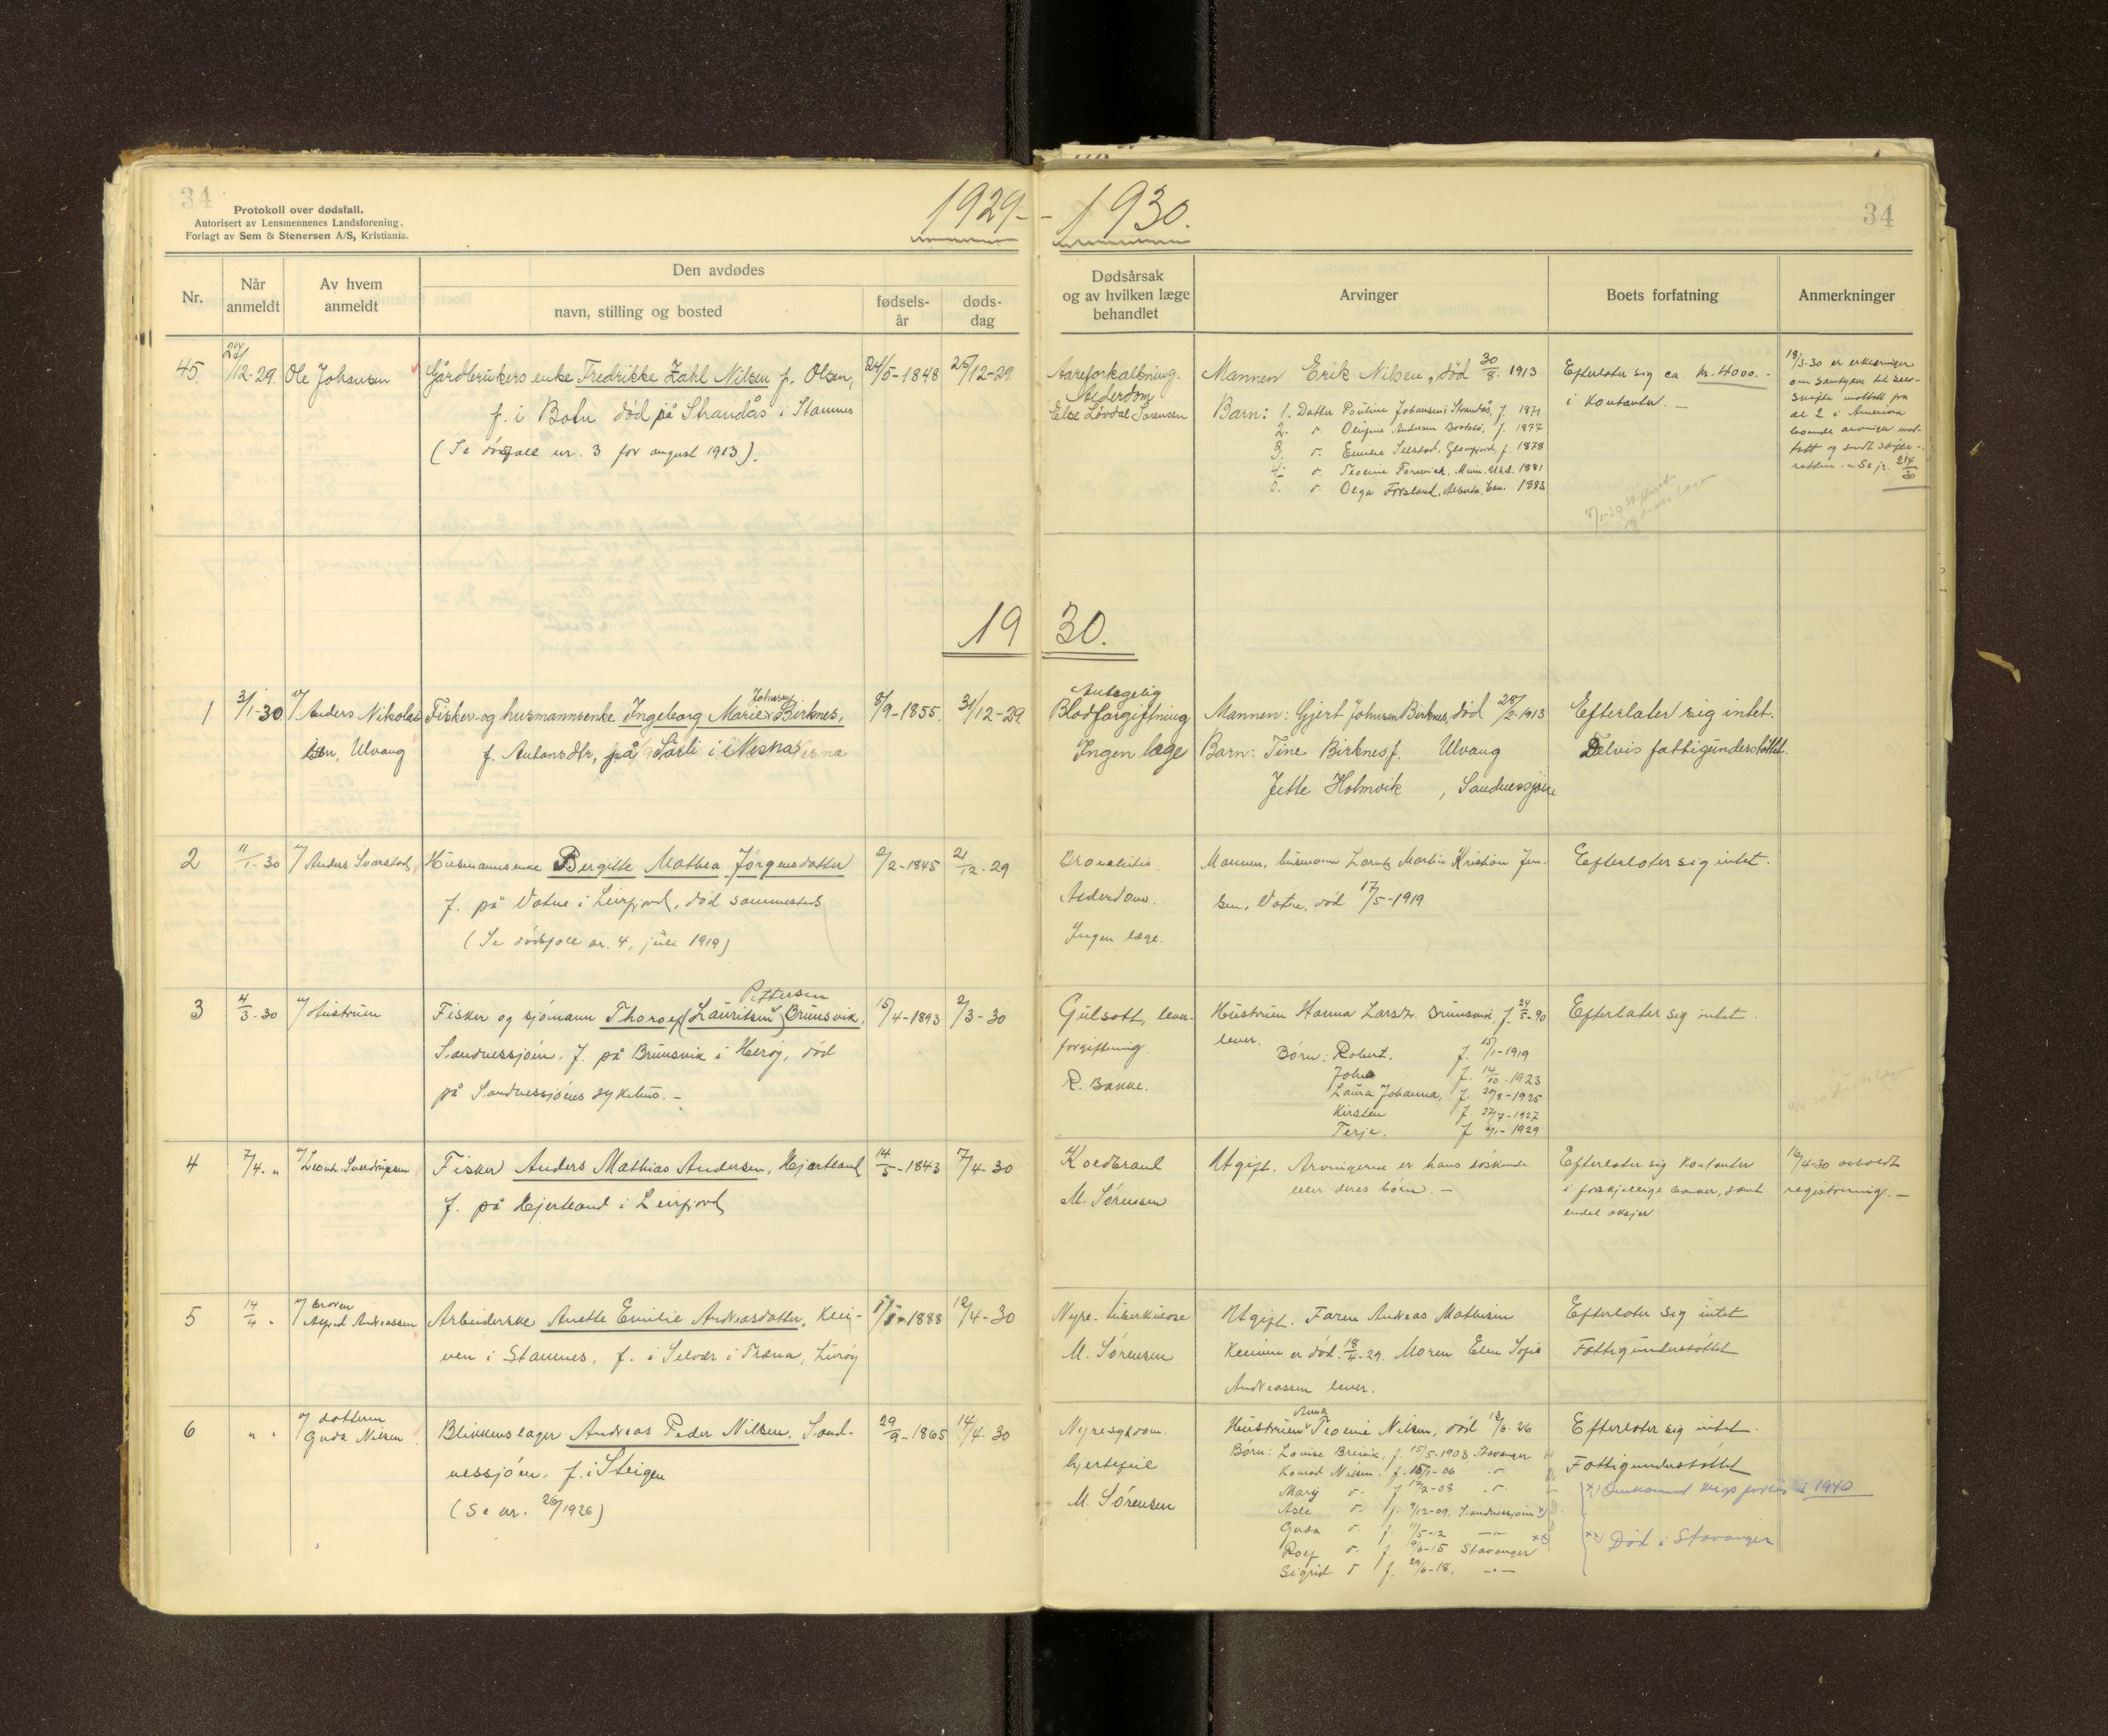 34
Protokoll over dødsfall.
Autorisert av Lensmennenes Landsforening.
Forlagt av Sem & Stenersen A/S, Kristiania.
1929-
-1930.
34
Nr.
Når anmeldt
Av hvem anmeldt
Den avdødes
navn, stilling og bosted
fødsels-år
døds-dag
Dødsårsak og av hvilken læge behandlet
Arvinger
Boets forfatning
Anmerkninger
45. 27/12-29. Ole Johansen
Gårdbrukers enke Fredrikke Zahl Nilsen f. Olsen, 24/5-1848 25/12-29.
f. i Bofn død på Strandås i Stamnes
(Se dødsfall nr. 3 for august 1913).
Aareforkalkning.
Alderdom
Else Løvdal Sørensen
Mannen Erik Nilsen, død 30/8. 1913
Barn: 1. Datter Pouline Johansen, Strandås, f. 1871
2. d. Olufine Andersen f. 1877
3. d. Emelie Selstad, Glomfjord, f. 1878
4. d. Teoline Minn. U.S.A. 1881
5. d. Olga Forsland, Alberta, Can. 1883
Efterlater sig ca. kr. 4000.-
i kontanter. -
18/3-30 er erklæringer
om samtykke til selv-
skifte mottatt fra
de 2 i Amerika
boende arvinger mot-
tatt og sendt skifte-
retten. - Se jr. 214/30
1930.
1 3/1-30. v/ Anders Nikolai-
sen, Ulvang
Fisker- og husmannsenke Ingeborg Marie Johnsen Birknes, 8/9-1855. 31/12-29.
f. Antonsdtr, på Sørli i Nesna
Antagelig
Blodforgiftning
Ingen læge
Mannen: Gjert Johnsen Birknes, død 28/2-1913
Barn: Tine Birknes f. Ulvang
Jette Holmvik, Sandnessjøen
Efterlater sig intet.
Delvis fattigunderstøttet.
2 11/1-30 v/ Anders Svarstad
Husmannsenke Bergitte Mathea Jørgensdatter 2/2-1845 21/12-29
f. på Votne i Leirfjord, død sammesteds
(Se dødsfall nr. 4, juli 1919)
Bronchitis.
Alderdom.
Ingen læge.
Mannen, husmann Lorentz Martin Kristian Jen-
sen, Votne, død 17/5-1919
Efterlater sig intet.
3 4/3-30 v/ Hustruen
Fisker og sjømann Thorolf (Lauritsen) Pettersen Brunsvik, 15/4-1893 2/3-30
Sandnessjøen. f. på Brunsvik i Herøy, død
på Sandnessjøens sykehus. -
Gulsott, lever-
forgiftning.
R. Bakke.
Hustruen Hanna Larsdtr. Brunsvik, f. 24/5-90
lever.
Børn: Robert. f. 15/1-1919
John f. 14/10-1923
Laura Johanna, f. 20/8-1925
Kirsten f. 27/7-1927
Terje. f. 4/1-1929
Efterlater sig intet.
4 7/4. " v/ Leonh. Sverdrupsen
Fisker Anders Mathias Andersen, Hjartland 14/5-1843 7/4-30
f. på Hjertland i Leirfjord
Koldbrand
M. Sørensen
Ugift. Arvingerne er hans søskende
eller deres børn. -
Efterlater sig kontanter
i forskjellige banker, samt
endel aksjer
16/4-30 avholdt
registrering. -
5 14/4 " v/ broren
Alfred Andreassen
Arbeiderske Anette Emilie Andreasdatter, Klei-
ven i Stamnes, f. i Selvær i Træna, Lurøy 1888 12/4-30
Nyre-tuberkulose
M. Sørensen
Ugift. Faren Andreas Mathisen
Kleiven er død 18/4-29. Moren Elen Sofie
Andreassen lever.
Efterlater sig intet
Fattigunderstøttet
6 " " v/ datteren
Guda Nilsen
Blikkenslager Andreas Peder Nilsen, Sand-
nessjøen. f. i Steigen 29/9-1865 14/4-30
(Se nr. 26/1926)
Nyresykdom.
hjertefeil
M. Sørensen
Hustruen Anna Teoline Nilsen, død 13/6-26
Børn: Louise Breivik, f. 15/5-1903, Stavanger
Konrad Nilsen, f. 15/1-06 d.
Mary d. f. 17/2-08 d.
Asle d. f. 9/12-09. Sandnessjøen x)
Guda d. f. 11/5-12 -"-
Rolf d. f. 9/6-15 Stavanger xx)
Sigrid d f. 29/6-18. -"-
Efterlater sig intet.
Fattigunderstøttet
x) Omkommet krigsforlis i 1940
xx) Død i Stavanger